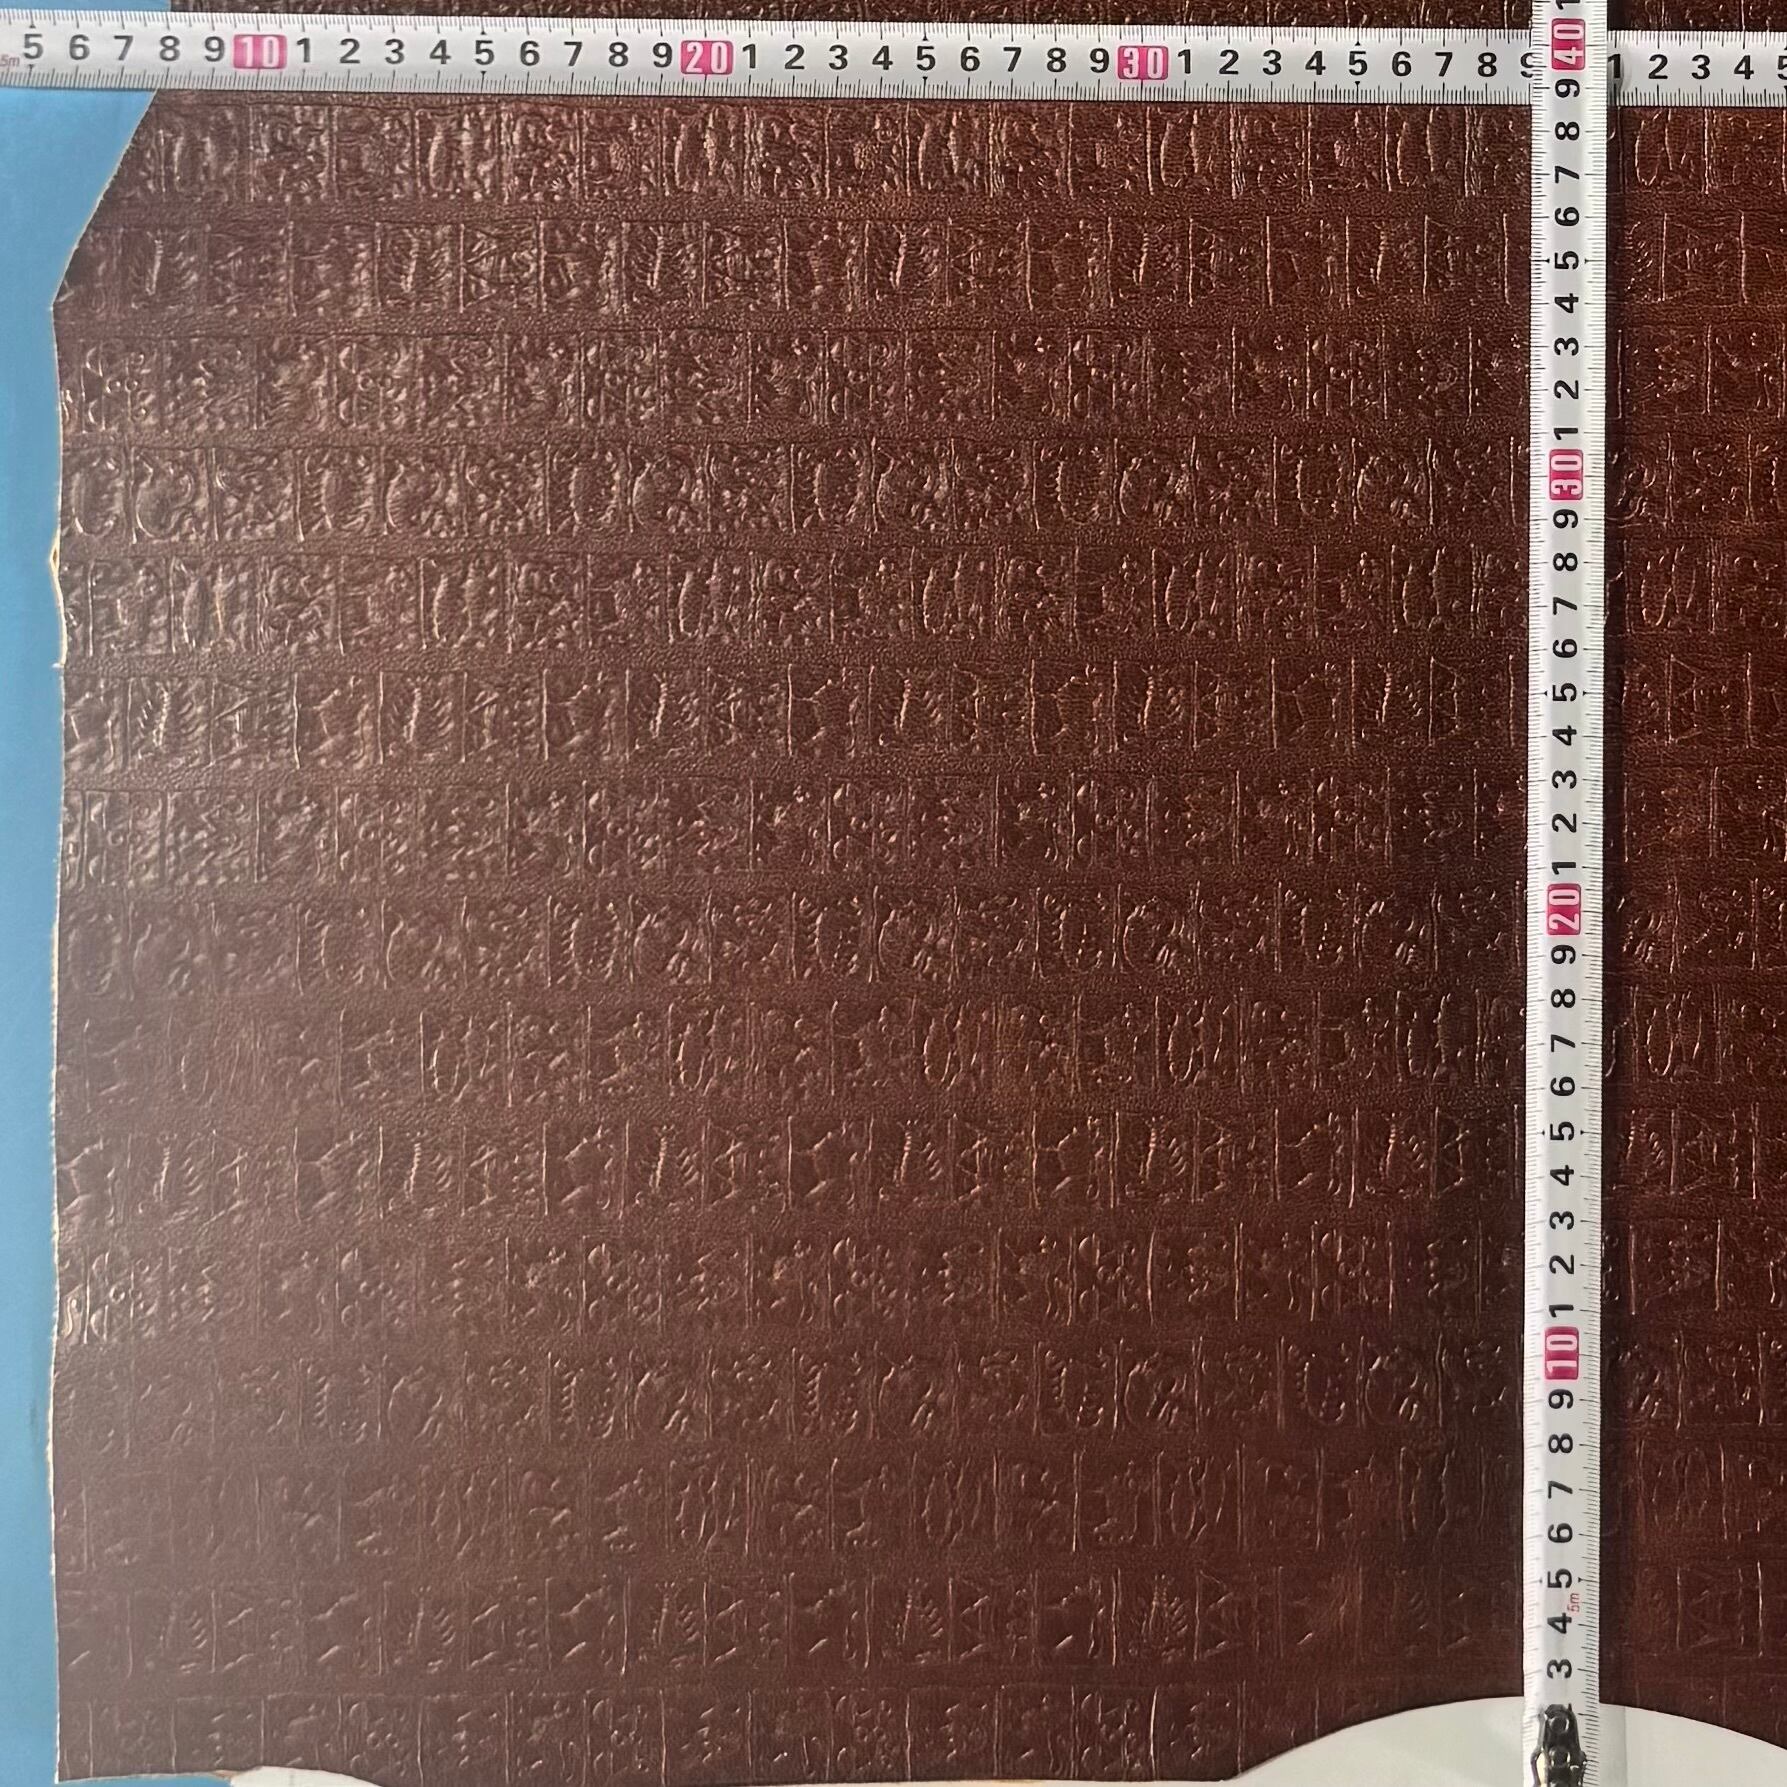 5m 5 6 7 8 9 10 1 2 3 4 5 6 7 8 9 20 1 2 3 4 5 6 7 8 9 30 1 2 3 4 5 6 7 8 9 1 2 3 4 5
1
40
9
8
7
6
5
4
3
2
1
30
9
8
7
6
5
4
3
2
1
20
9
8
7
6
5
4
3
2
1
10
9
8
7
6
5
5m
4
3
2